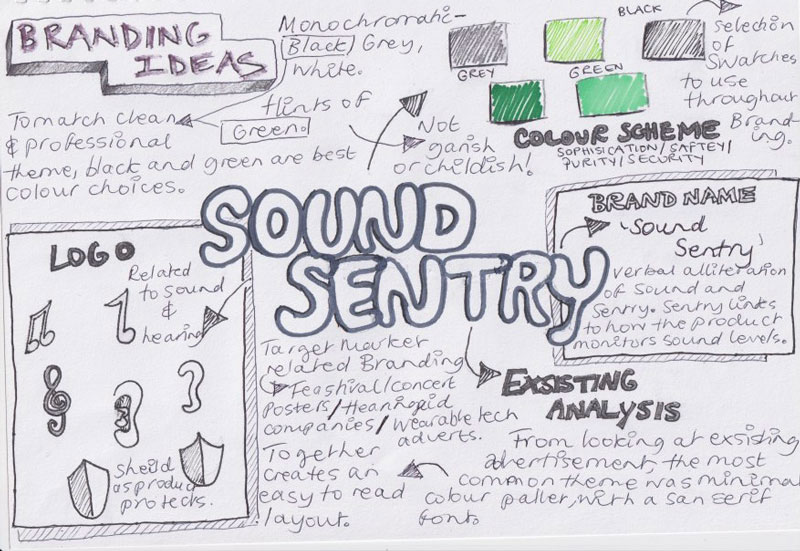 BRANDING
IDEAS
Monochromatic-
Black/Grey,
White.
Hints of
Green.
To match clean
& professional
theme, black and green are best
colour choices.
BLACK
GREY
GREEN
Selection
of
Swatches
to use
throughout
Brand-
ing.
Not
garish
or childish!
COLOUR SCHEME
SOPHISICATION/SAFTEY/
PURITY/SECURITY
SOUND
SENTRY
BRAND NAME
'Sound
Sentry'
verbal alliteration
of Sound and
Sentry. Sentry links
to how the product
monitors sound levels.
LOGO
Related
to sound
&
hearing
Sheild
as product
protects.
Target Market
related Branding
Feastival/concert
posters/Hearingaid
companies/Wearable tech
adverts.
Together
creates an
easy to read
layout.
EXSISTING
ANALYSIS
From looking at exsisting
advertisement, the most
common theme was minimal
colour pallet, with a san serif
font.